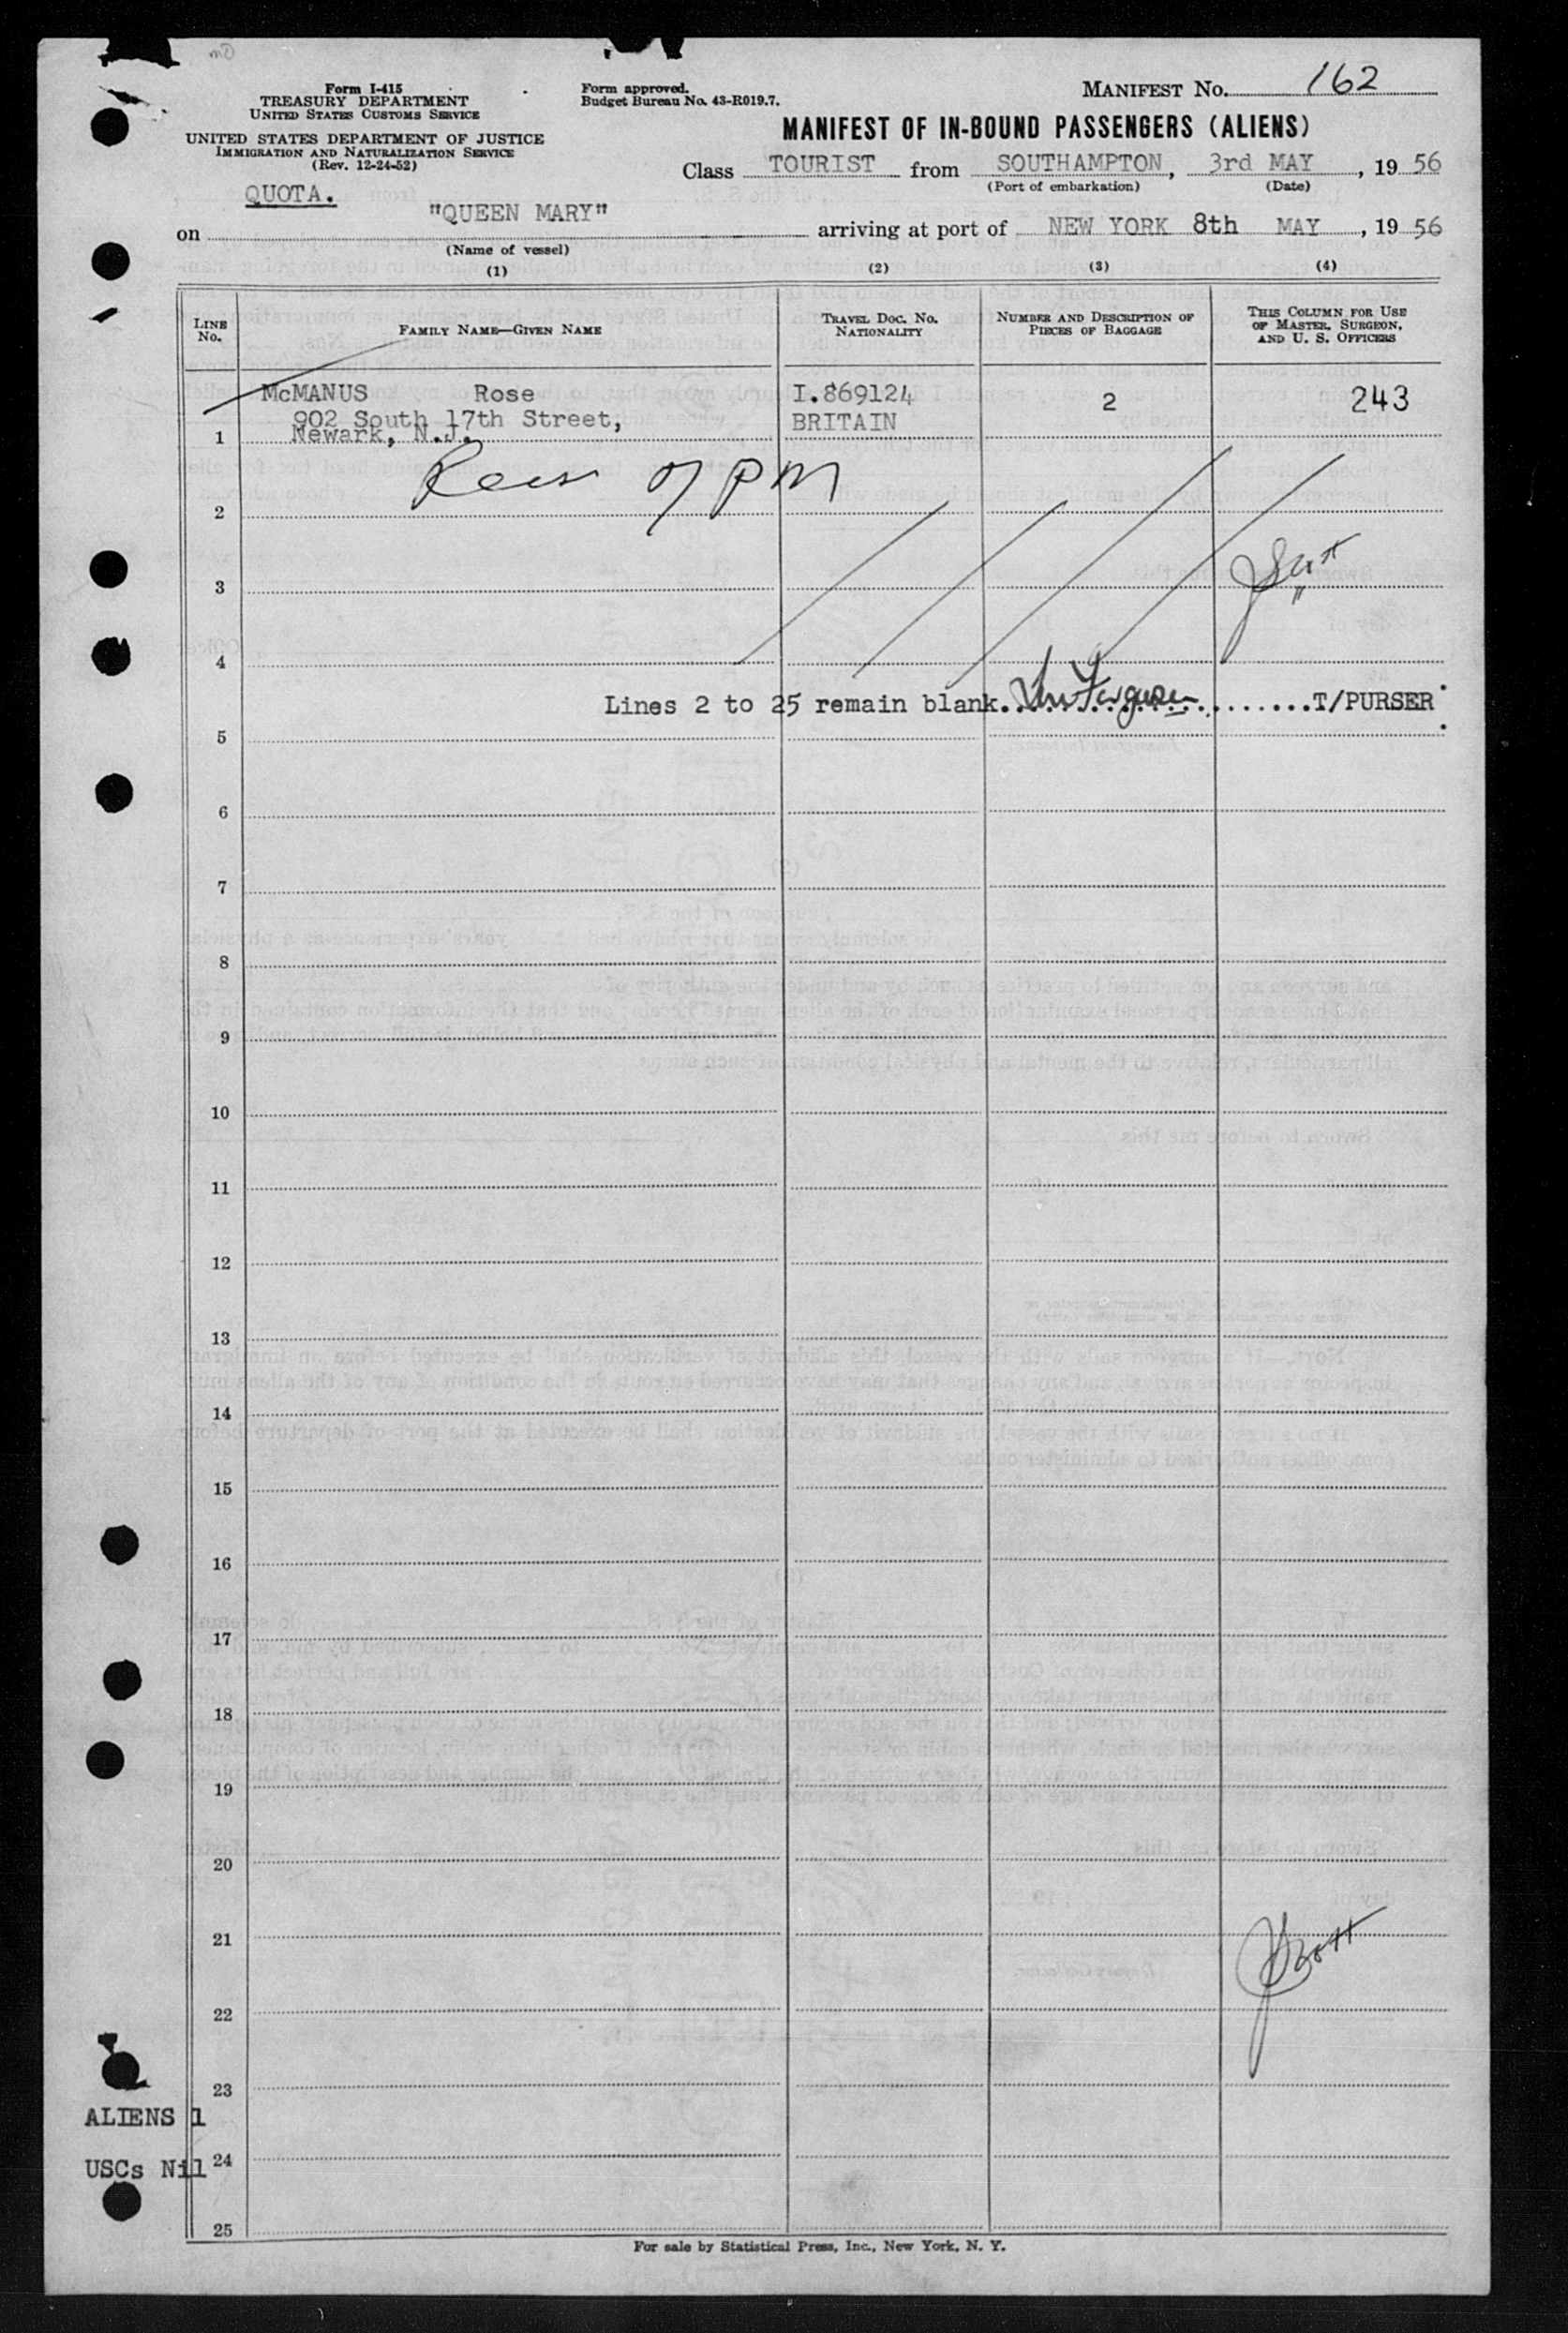 Form I-415
TREASURY DEPARTMENT
UNITED STATES CUSTOMS SERVICE
UNITED STATES DEPARTMENT OF JUSTICE
IMMIGRATION AND NATURALIZATION SERVICE
(Rev. 12-24-52)
Form approved.
Budget Bureau No. 43-R019.7.
MANIFEST No. 162
MANIFEST OF IN-BOUND PASSENGERS (ALIENS)
Class TOURIST from SOUTHAMPTON, 3rd MAY, 19 56
(Port of embarkation) (Date)
QUOTA.
on "QUEEN MARY" arriving at port of NEW YORK 8th MAY, 19 56
(Name of vessel)
(1) (2) (3) (4)
LINE No. FAMILY NAME—GIVEN NAME TRAVEL DOC. No. NATIONALITY NUMBER AND DESCRIPTION OF PIECES OF BAGGAGE THIS COLUMN FOR USE OF MASTER, SURGEON, AND U. S. OFFICERS
McMANUS Rose I.869124 2 243
902 South 17th Street, BRITAIN
1 Newark, N.J.
7 PM
2
3
4
Lines 2 to 25 remain blank. Ferguson T/PURSER
5
6
7
8
9
10
11
12
13
14
15
16
17
18
19
20
21
22
23
ALIENS 1
24
USCs Nil
25
For sale by Statistical Press, Inc., New York, N. Y.